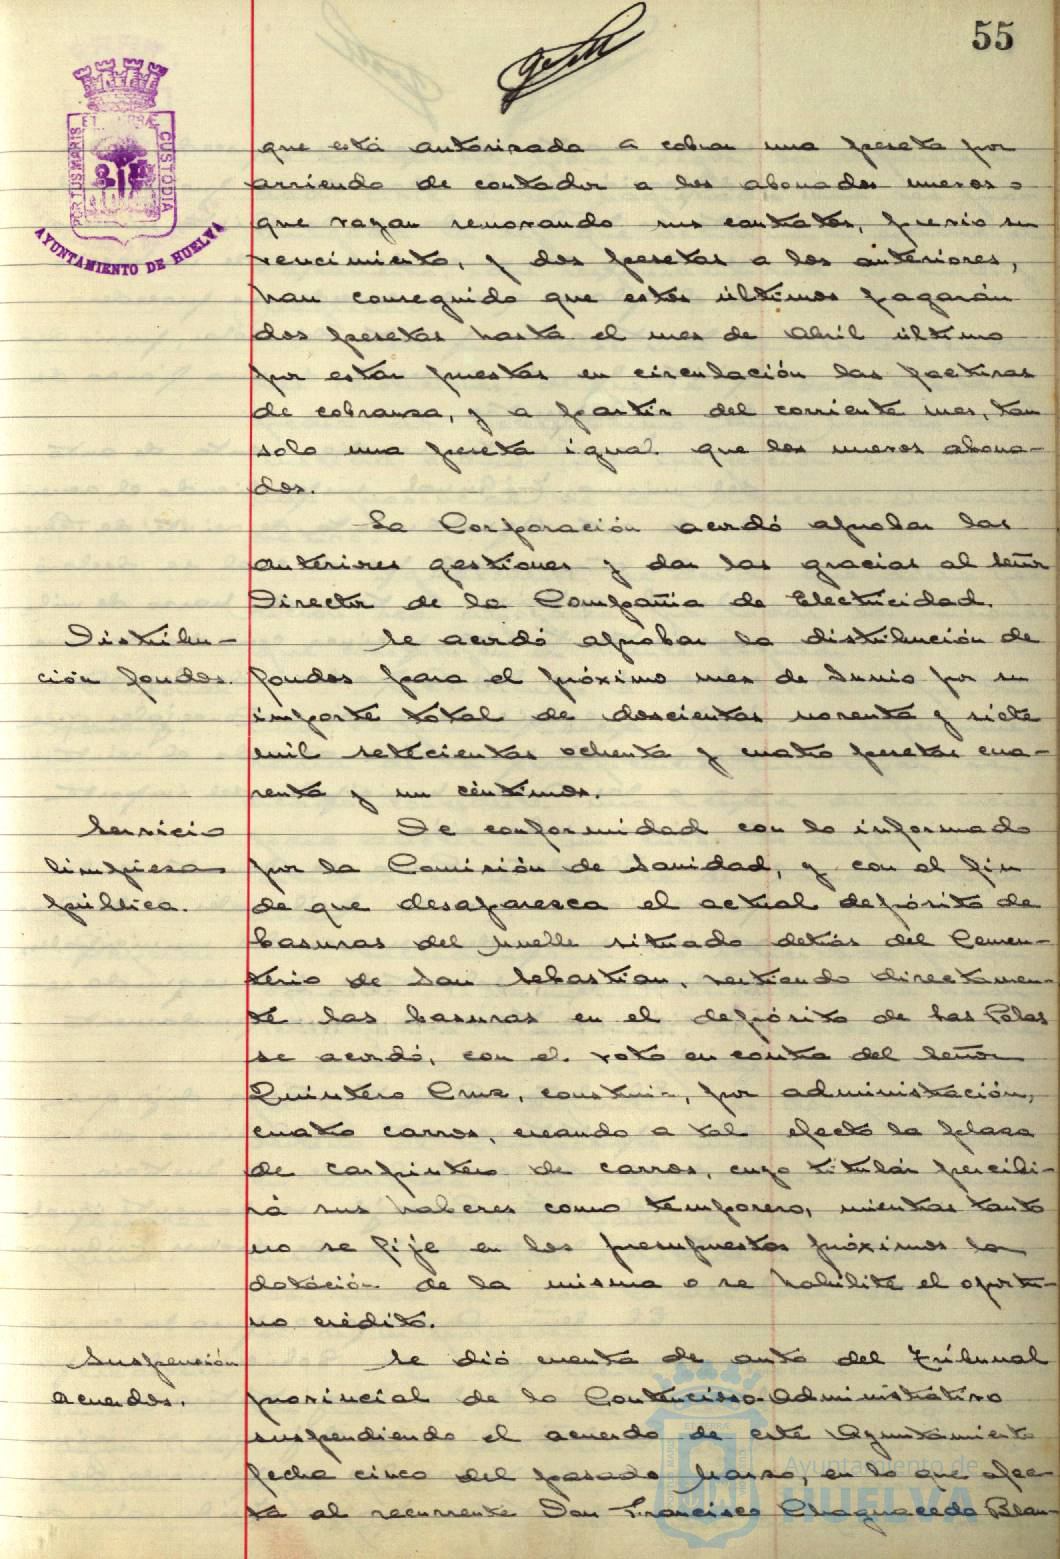 55
PORTUS MARIS ET TERRAE CUSTODIA
AYUNTAMIENTO DE HUELVA
que está autorizada a cobrar una peseta por
arriendo de contador a los abonados nuevos o
que vayan renovando sus contratos, previo su
vencimiento, y dos pesetas a los anteriores,
han conseguido que estos últimos pagarán
dos pesetas hasta el mes de Abril último
por estar puestas en circulación las facturas
de cobranza, y a partir del corriente mes, tan
solo una peseta igual que los nuevos abona-
dos.
La Corporación acordó aprobar las
anteriores gestiones y dar las gracias al señor
Director de la Compañia de Electricidad.
Distribu-
ción fondos.
Se acordó aprobar la distribución de
fondos para el próximo mes de Junio por su
importe total de doscientas noventa y siete
mil setecientas ochenta y cuatro pesetas cua-
renta y un céntimos.
Servicio
limpieza
pública.
De conformidad con lo informado
por la Comisión de Sanidad, y con el fin
de que desaparezca el actual depósito de
basuras del muelle situado detrás del Cemen-
terio de San Sebastian, vertiendo directamen-
te las basuras en el depósito de las Polas
se acordó, con el voto en contra del señor
Quintero Cruz, construir, por administración,
cuatro carros, creando a tal efecto la plaza
de carpintero de carros, cuyo titular percibi-
rá sus haberes como temporero, mientras tanto
no se fije en los presupuestos próximos la
dotación de la misma o se habilite el oportu-
no crédito.
Suspensión
acuerdos.
Se dió cuenta de auto del Tribunal
provincial de lo Contencioso-Administrativo
suspendiendo el acuerdo de este Ayuntamiento
fecha cinco del pasado Marzo, en lo que afec-
ta al recurrente Don Francisco Chaguaceda Blan-
Ayuntamiento de
HUELVA